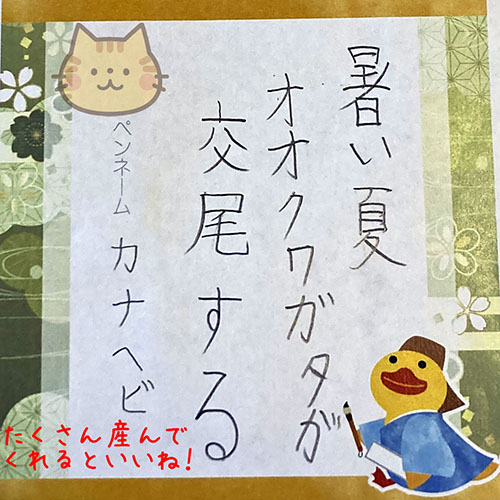 暑い夏
オオクワガタが
交尾する
ペンネーム カナヘビ
たくさん産んで
くれるといいね!